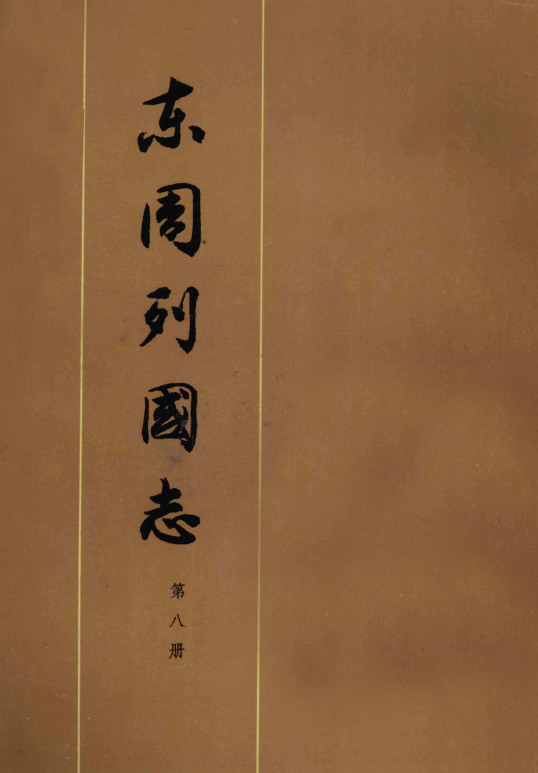 东周列國志
第八册